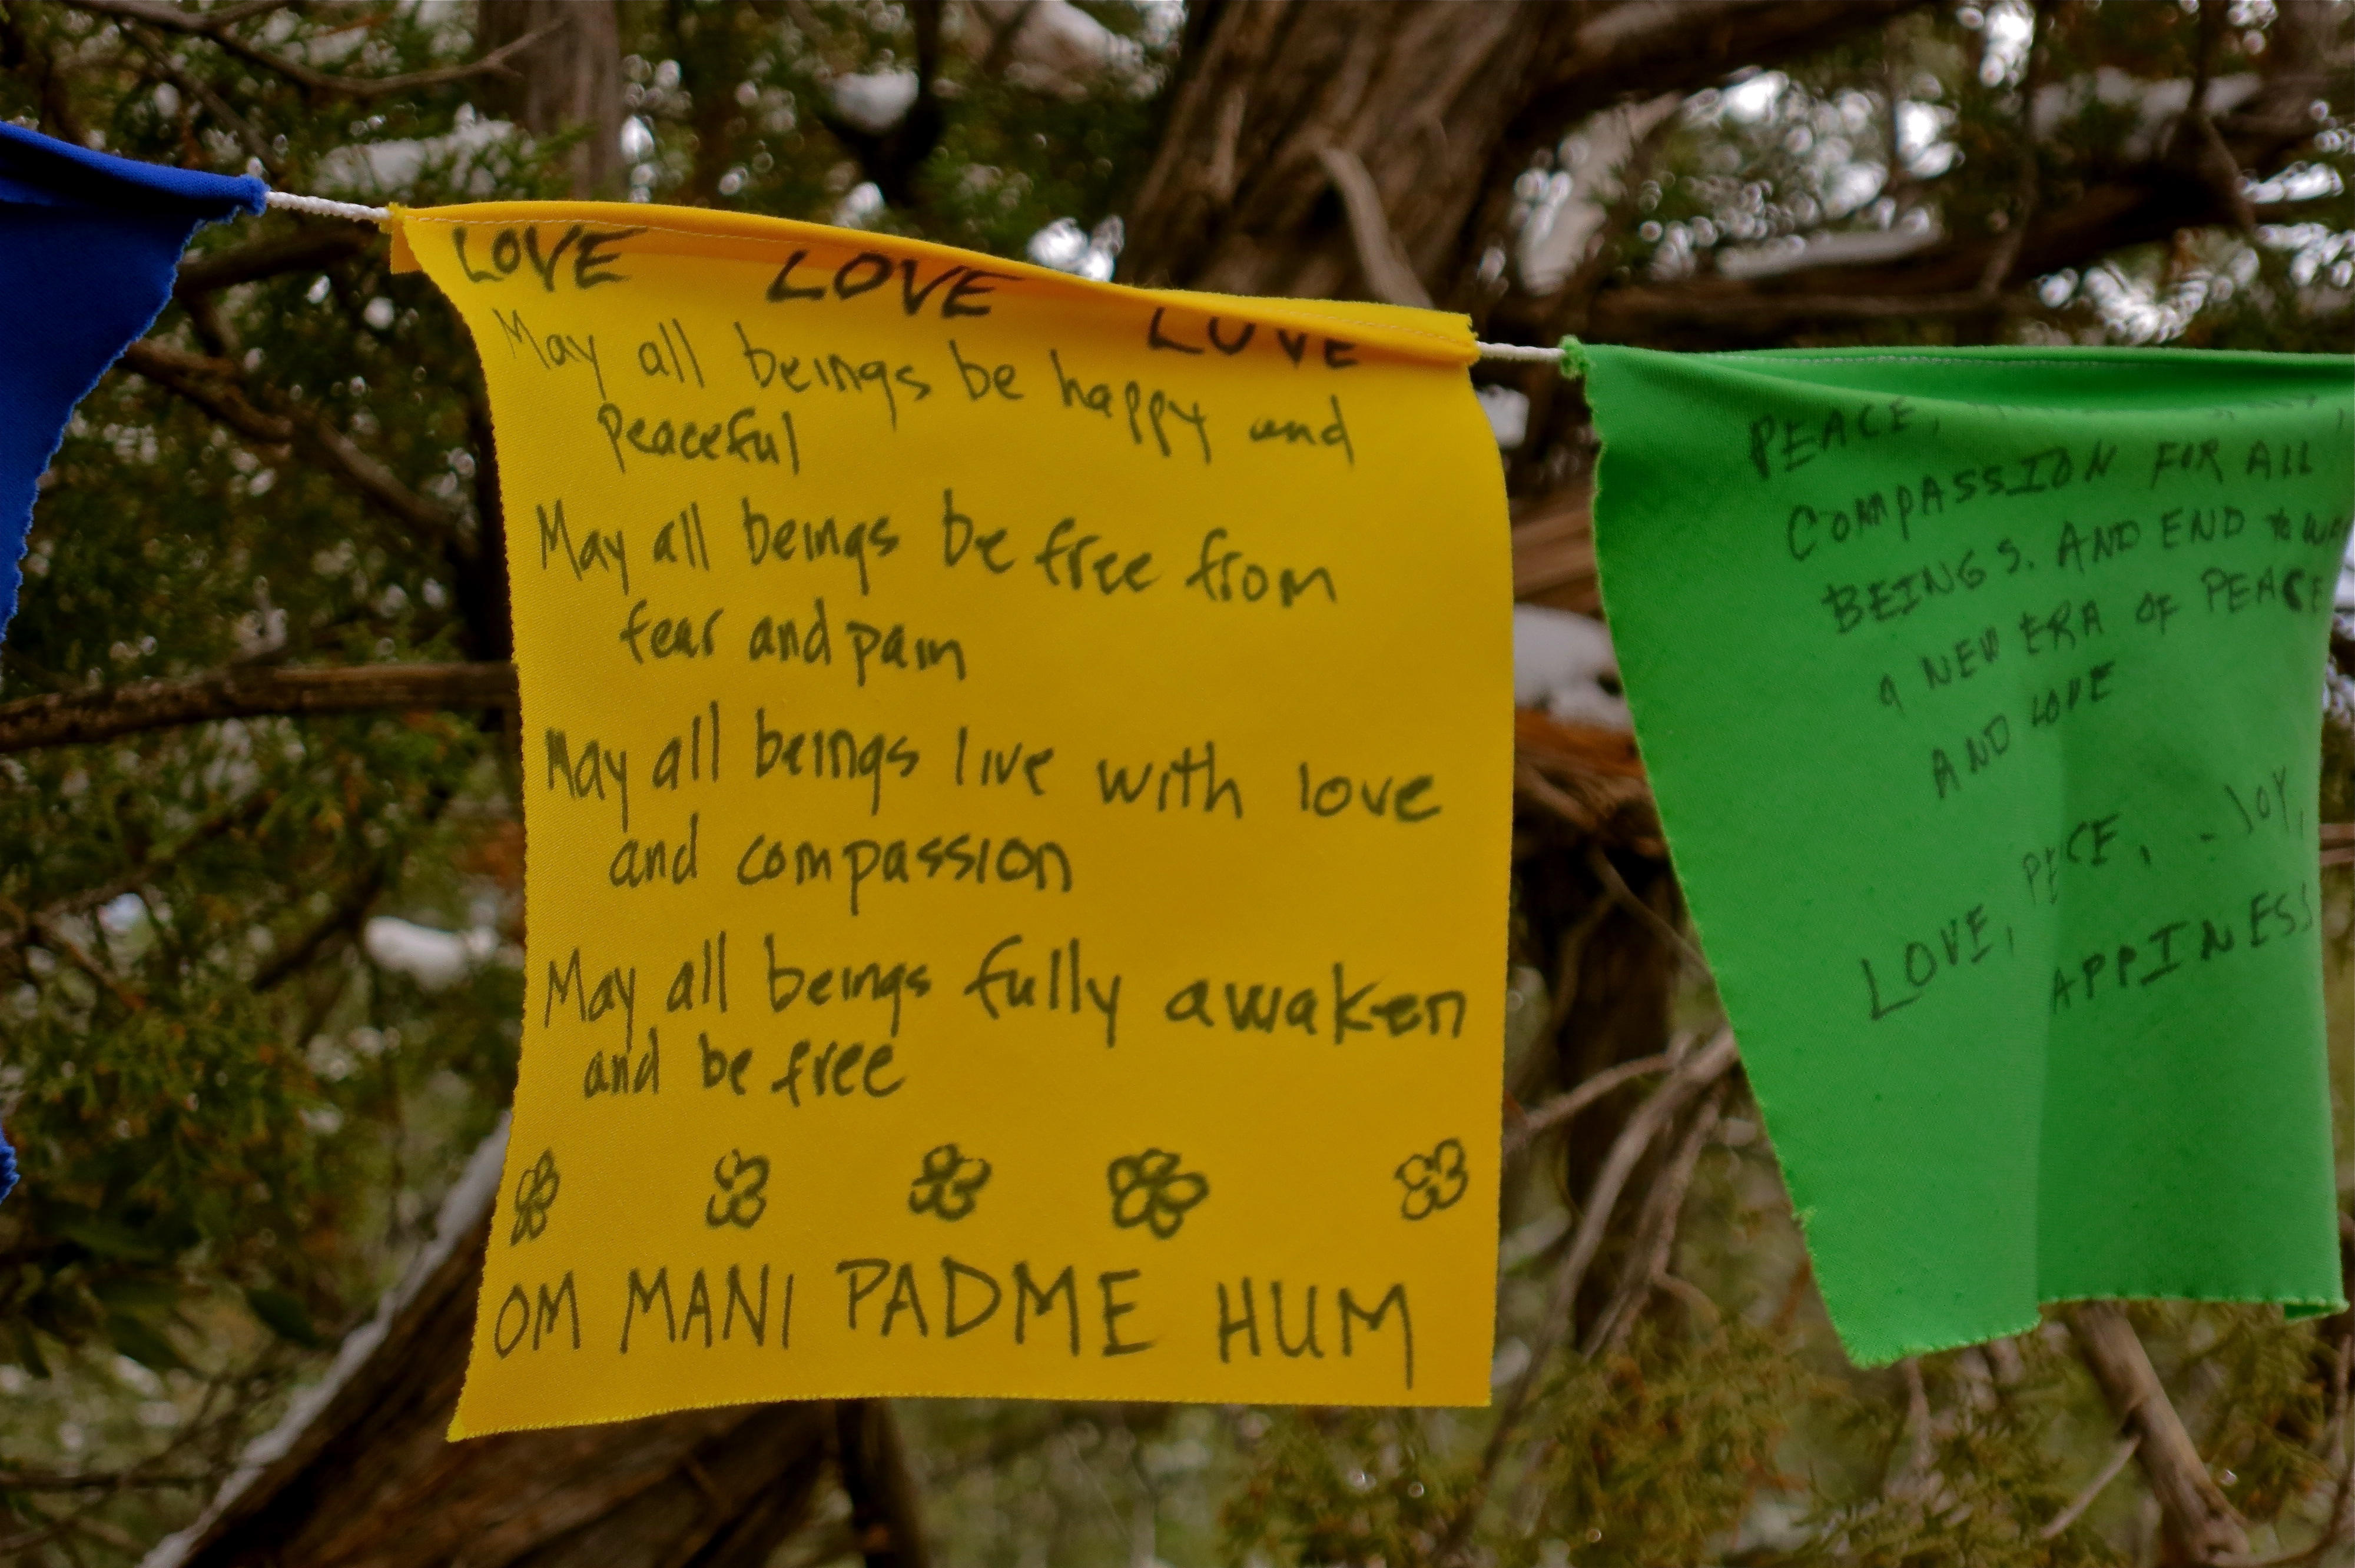 LOVE LOVE LOVE
May all beings be happy and
Peaceful
May all beings be free from
fear and pain
May all beings live with love
and compassion
May all beings fully awaken
and be free
OM MANI PADME HUM
PEACE,
COMPASSION FOR ALL
BEINGS. AND END to
a NEW ERA OF PEACE
AND LOVE
LOVE, PEACE, JOY,
APPINESS